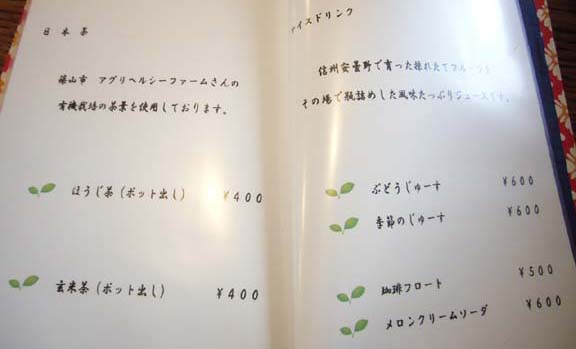 日本茶
篠山市 アグリヘルシーファームさんの
有機栽培の茶葉を使用しております。
ほうじ茶(ポット出し) ¥400
玄米茶(ポット出し) ¥400
アイスドリンク
信州安曇野で育った採れたてフルーツを
その場で瓶詰めした風味たっぷりジュースです。
ぶどうじゅーす ¥600
季節のじゅーす ¥600
珈琲フロート ¥500
メロンクリームソーダ ¥600